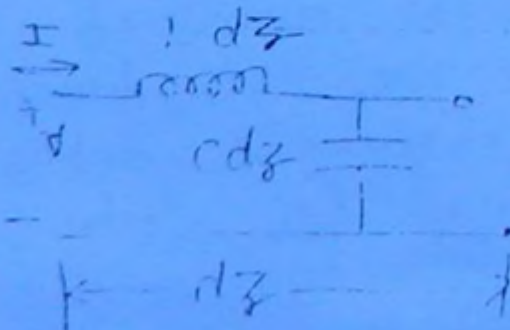 I dz
+
cdz
-
dz